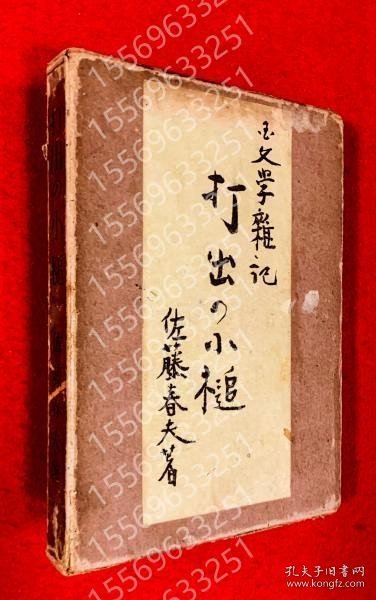 文學雜記
打出の小槌
佐藤春夫著
15569633251
15569633251
15569633251
15569633251
15569633251
15569633251
孔夫子旧书网
www.kongfz.com